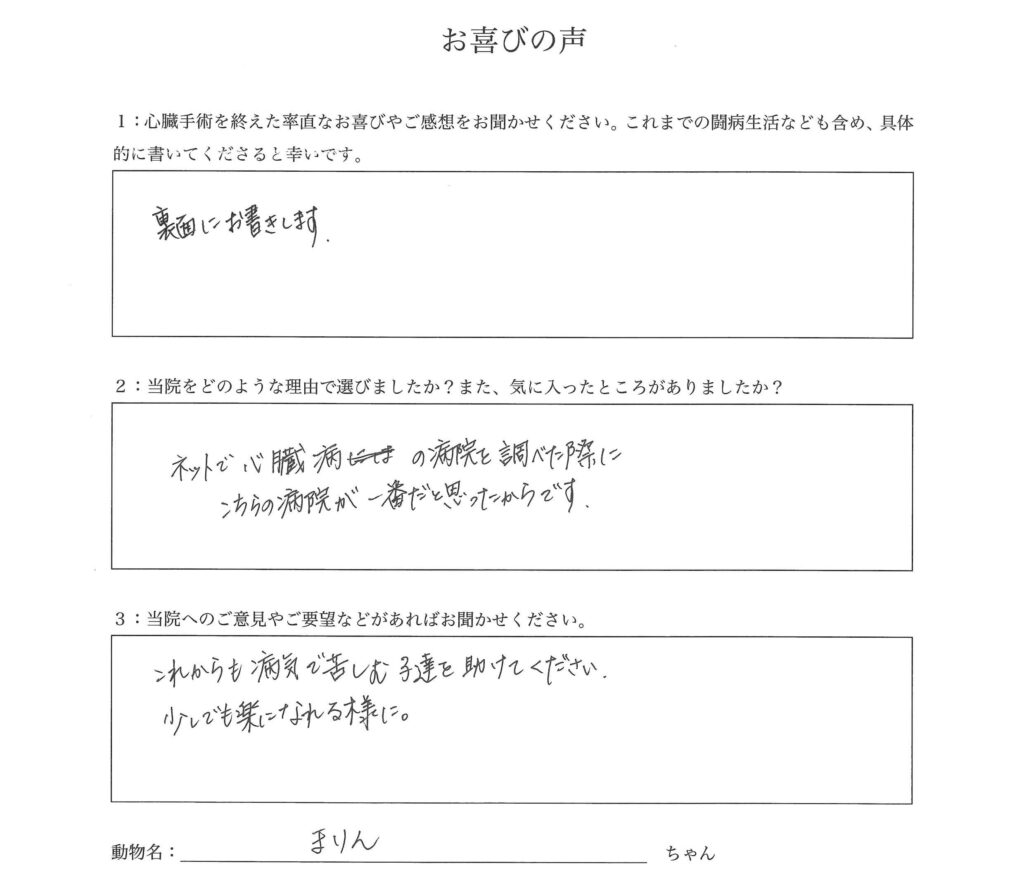 お喜びの声
1：心臓手術を終えた率直なお喜びやご感想をお聞かせください。これまでの闘病生活なども含め、具体
的に書いてくださると幸いです。
裏面にお書きします.
2：当院をどのような理由で選びましたか？また、気に入ったところがありましたか？
ネットで心臓病の病院を調べた際に
こちらの病院が一番だと思ったからです.
3：当院へのご意見やご要望などがあればお聞かせください。
これからも病気で苦しむ子達を助けてください.
少しでも楽になれる様に。
動物名：まりん ちゃん